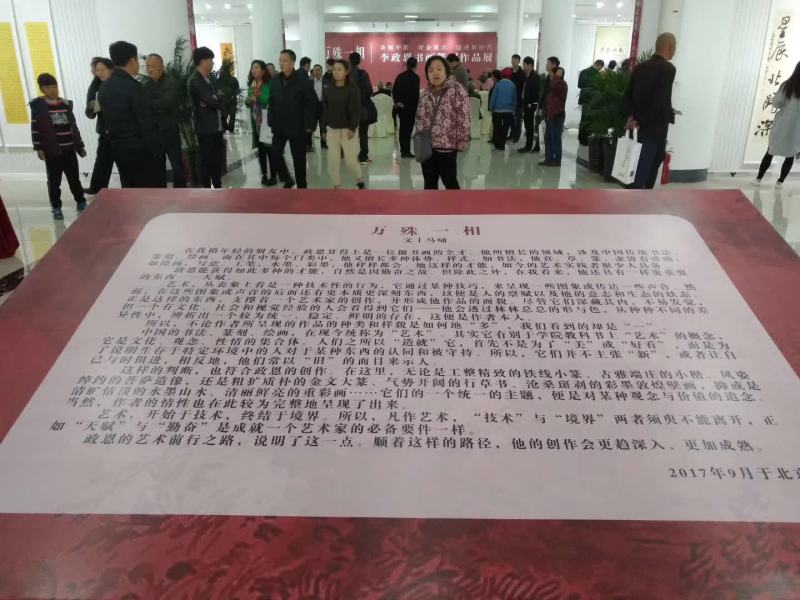 万殊一相
李政恩书画篆刻作品展
星辰北
万殊一相
文丨马啸
在我稍年轻的朋友中，政恩算得上是一位能书画的全才。他所擅长的领域，涉及中国传统书法、
篆刻、绘画，而在其中每个门类中，他又擅长多种体势、样式，如书法，他真、草、篆、隶皆有涉猎；
政恩能获得如此多种的才能，自然是因勤奋之故，但除此之外，在我看来，他还具有一样更重要
的东西——天赋。
艺术，从表象上看是一种技术性的行为，它通过某种技巧，来呈现一些图象或传达一些声音。然
而，在这些图象或声音的后面还有更本质更深刻东西，这便是人的禀赋以及他的意志和生命的状态。
正是这样的东西，支撑着一个艺术家的创作，并形成他作品的面貌。尽管它们深藏其内，不易发现，
但一个有文化、社会和视觉经验的人会看到它们——他会透过林林总总的形与色，从种种不同的差
异性中，辨析出一个较为统一、稳定、鲜明的存在，这便是作者本人。
所以，不论作者所呈现的作品的种类和样貌是如何地“多”，我们看到的却是“一”。
中国的书法、篆刻、绘画，在现今统称为“艺术”，其实它有别于学院教科书上“艺术”的概念，
它是文化、观念、性情的集合体。人们之所以“造就”它，首先不是为了“美”或“好看”，而是为
了说明生存于特定环境中的人对于某种东西的认同和被守持。所以，它们并不主张“新”，或者让自
己与时俱进，相反地，他们常以“旧”的面目来示人。
这样的判断，也符合政恩的创作。在这里，无论是工整精致的铁线小篆、古雅端庄的小楷、风姿
绰约的菩萨造像，还是粗犷质朴的金文大篆、气势开阔的行草书、沧桑斑剥的彩墨敦煌壁画，抑或是
清旷恬淡的水墨山水、清丽鲜亮的重彩画……它们的一个统一的主题，便是对某种观念与价值的追念。
当然，作者的情怀也在此较为完整地呈现了出来。
艺术，开始于技术，终结于境界。所以，凡作艺术，“技术”与“境界”两者须臾不能离开，正
如“天赋”与“勤奋”是成就一个艺术家的必备要件一样。
政恩的艺术前行之路，说明了这一点。顺着这样的路径，他的创作会更趋深入、更加成熟。
2017年9月于北京